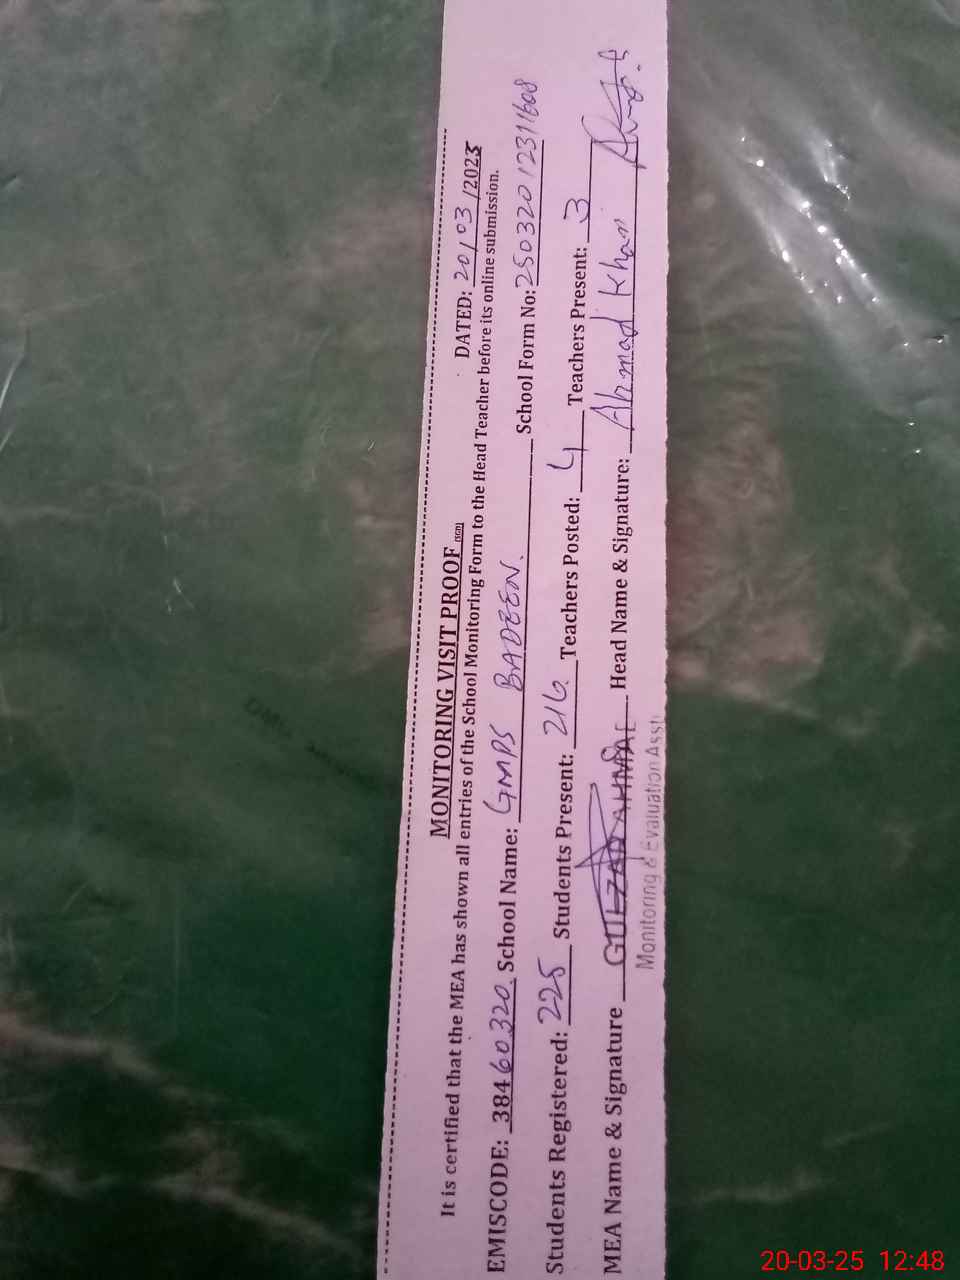 MONITORING VISIT PROOF (SGD) DATED: 20/03/2025
It is certified that the MEA has shown all entries of the School Monitoring Form to the Head Teacher before its online submission.
EMISCODE: 38460320 School Name: GMPS BADEEN. School Form No: 25032012311608
Students Registered: 225 Students Present: 216 Teachers Posted: 4 Teachers Present: 3
MEA Name & Signature GULZAR AHMAD Head Name & Signature: Ahmad Khan
Monitoring & Evaluation Assti
20-03-25 12:48